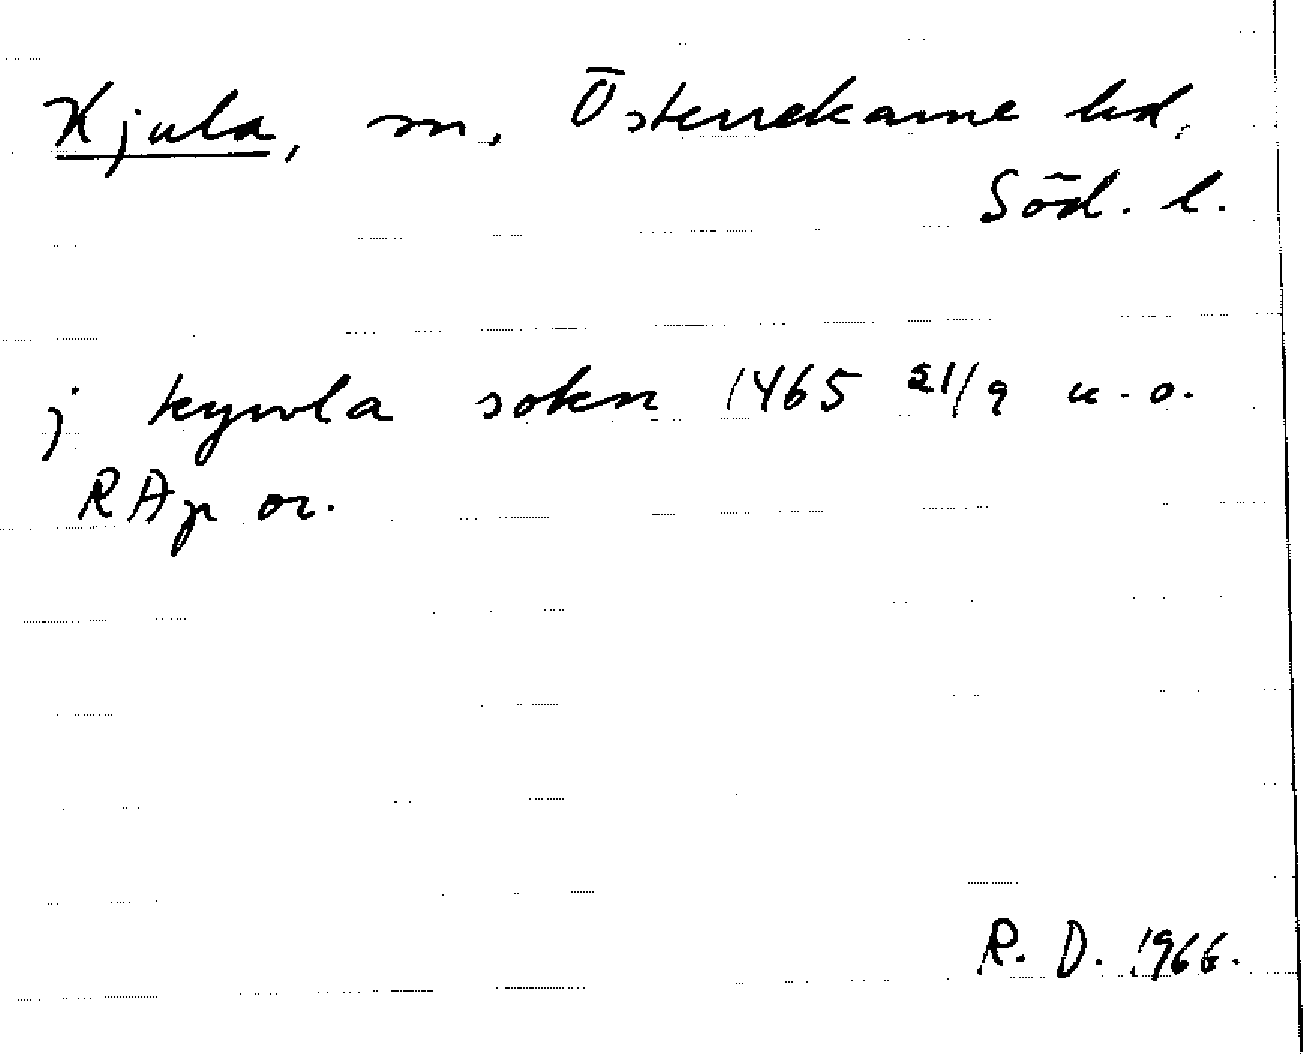 Kjula, sn, Österrekarne hd,
Söd. l.
j kywla sokn 1465 21/9 u. o.
RAp or.
R. D. 1966.